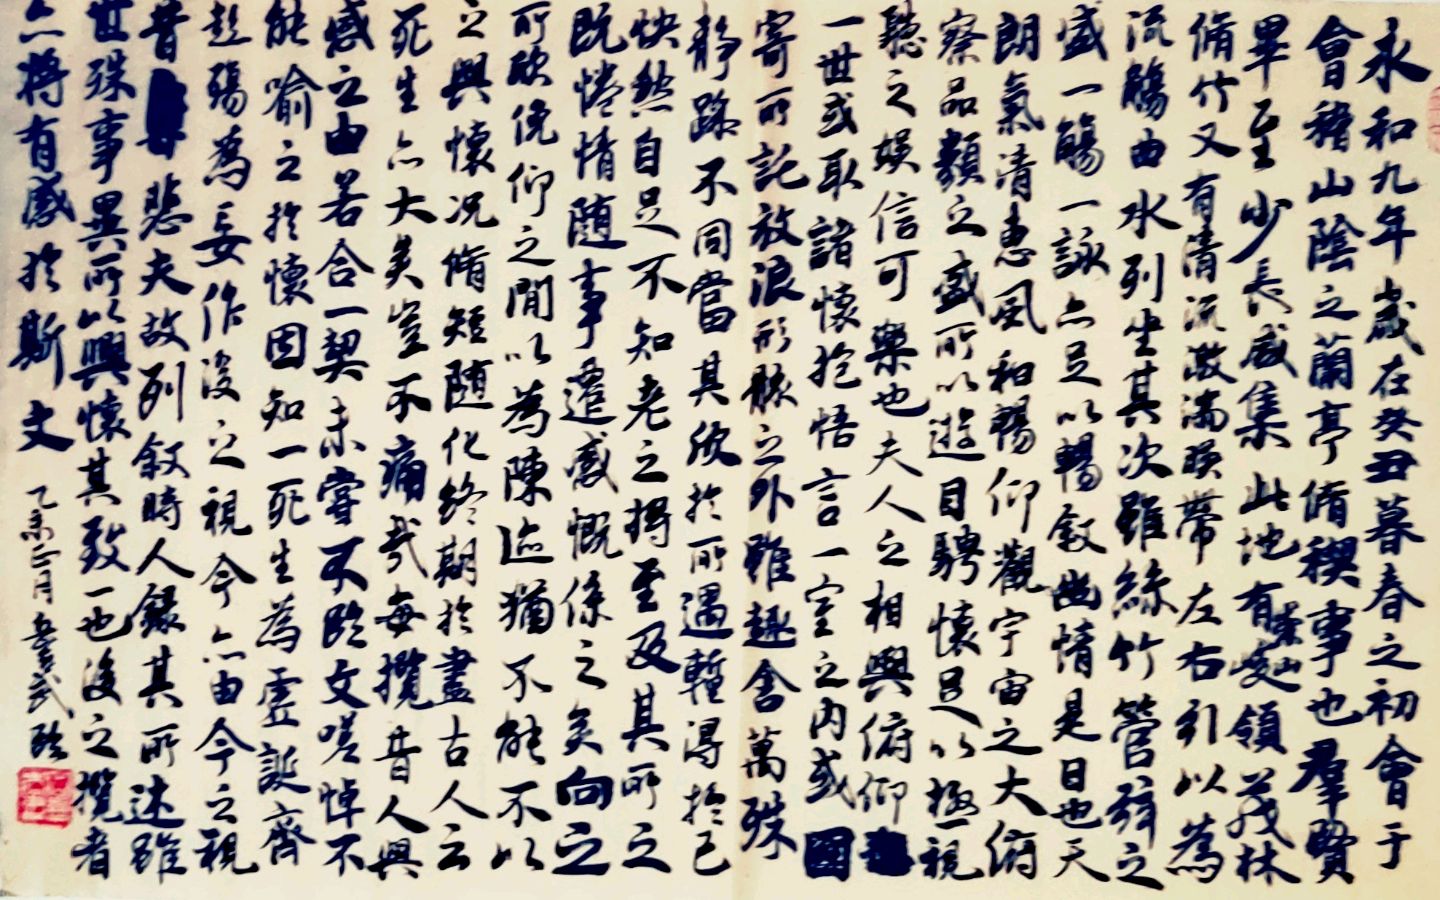 永和九年歲在癸丑暮春之初會于
會稽山陰之蘭亭脩稧事也羣賢
畢至少長咸集此地有崇山峻領茂林
脩竹又有清流激湍暎帶左右引以為
流觴曲水列坐其次雖絲竹管弦之
盛一觴一詠亦足以暢敘幽情是日也天
朗氣清惠風和暢仰觀宇宙之大俯
察品類之盛所以遊目騁懷足以極視
聽之娛信可樂也夫人之相與俯仰
一世或取諸懷抱悟言一室之內或因
寄所託放浪形骸之外雖趣舍萬殊
靜躁不同當其欣於所遇暫得於己
快然自足不知老之將至及其所之
既惓情隨事遷感慨係之矣向之
所欣俛仰之間以為陳迹猶不能不以
之興懷況脩短隨化終期於盡古人云
死生亦大矣豈不痛哉每攬昔人興
感之由若合一契未嘗不臨文嗟悼不
能喻之於懷固知一死生為虛誕齊
彭殤為妄作後之視今亦由今之視
昔悲夫故列敘時人錄其所述雖
世殊事異所以興懷其致一也後之攬者
亦將有感於斯文
乙未正月